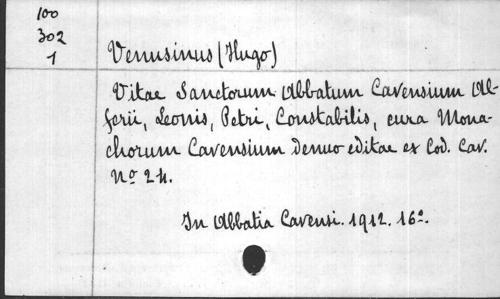 100
302
1
Venusinus (Hugo)
Vitae Sanctorum Abbatum Cavensium Al-
ferii, Leonis, Petri, Constabilis, cura Mona-
chorum Cavensium denuo editae ex Cod. Cav.
Nº 24.
In Abbatia Cavensi. 1912. 16º.